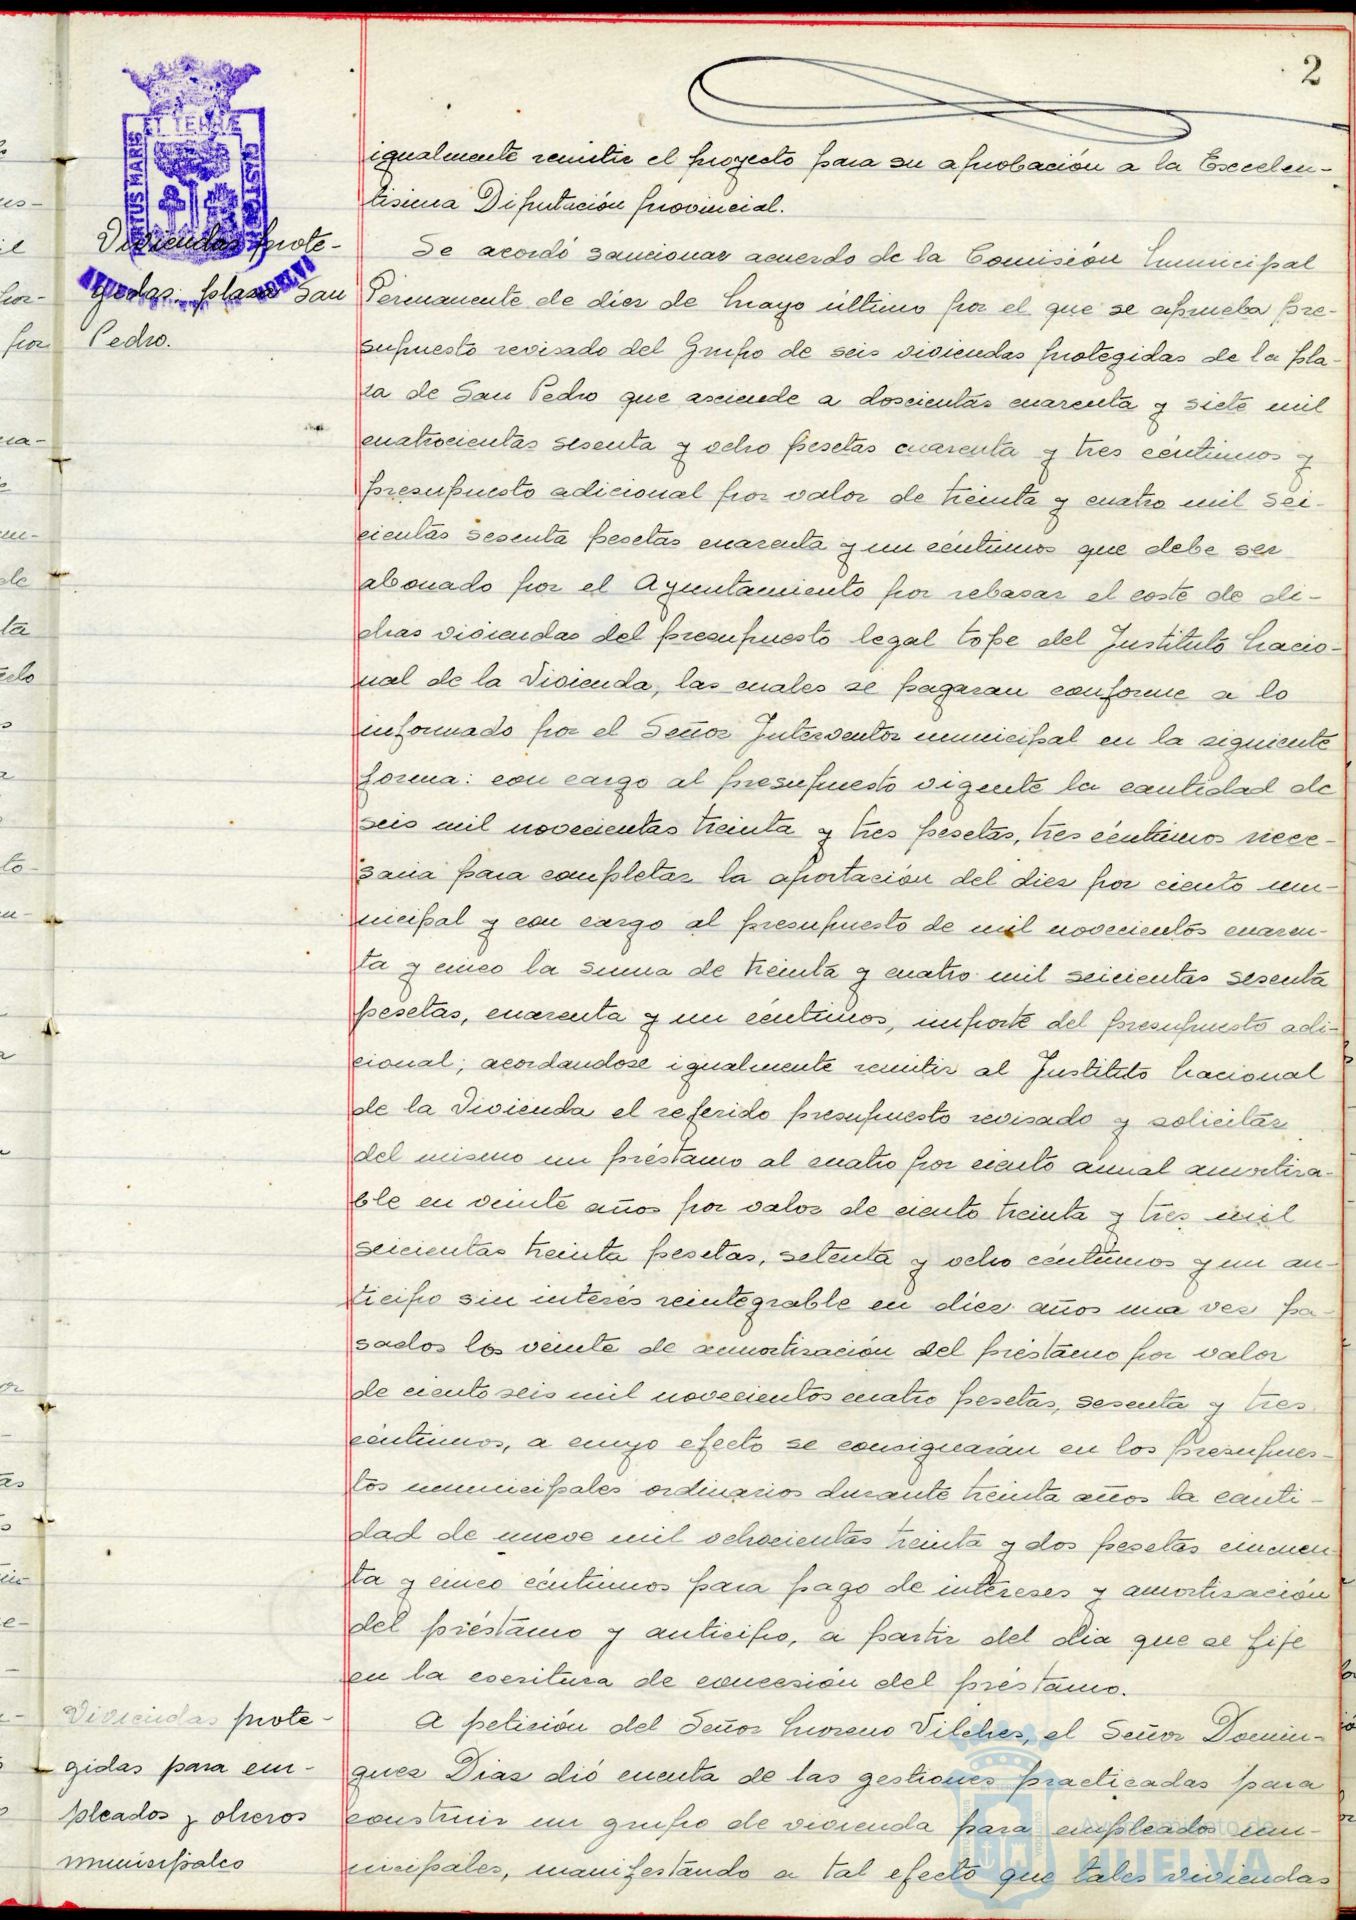 2
ET TERRÆ
PORTUS MARIS
CUSTODIA
igualmente remitir el proyecto para su aprobación a la Excelen-
tisima Diputación provincial.
Viviendas prote-
gidas: plaza San
Pedro.
Se acordó sancionar acuerdo de la Comisión Municipal
Permanente de diez de Mayo ultimo por el que se aprueba pre-
supuesto revisado del Grupo de seis viviendas protegidas de la pla-
za de San Pedro que asciende a doscientas cuarenta y siete mil
cuatrocientas sesenta y ocho pesetas cuarenta y tres céntimos y
presupuesto adicional por valor de treinta y cuatro mil sei-
cientas sesenta pesetas cuarenta y un céntimos que debe ser
abonado por el Ayuntamiento por rebasar el coste de di-
chas viviendas del presupuesto legal tope del Instituto Nacio-
nal de la Vivienda, las cuales se pagaran conforme a lo
informado por el Señor Interventor municipal en la siguiente
forma: con cargo al presupuesto vigente la cantidad de
seis mil novecientas treinta y tres pesetas, tres céntimos nece-
saria para completar la aportación del diez por ciento mu-
nicipal y con cargo al presupuesto de mil novecientos cuaren-
ta y cinco la suma de treinta y cuatro mil seicientas sesenta
pesetas, cuarenta y un céntimos, importe del presupuesto adi-
cional; acordandose igualmente remitir al Instituto Nacional
de la Vivienda el referido presupuesto revisado y solicitar
del mismo un préstamo al cuatro por ciento anual amortiza-
ble en veinte años por valor de ciento treinta y tres mil
seicientas treinta pesetas, setenta y ocho céntimos y un an-
ticipo sin interés reintegrable en diez años una vez pa-
sados los veinte de amortización del préstamo por valor
de ciento seis mil novecientos cuatro pesetas, sesenta y tres
céntimos, a cuyo efecto se consignarán en los presupues-
tos municipales ordinarios durante treinta años la canti-
dad de nueve mil ochocientas treinta y dos pesetas cincuen-
ta y cinco céntimos para pago de intereses y amortización
del préstamo y anticipo, a partir del dia que se fije
en la escritura de concesión del préstamo.
Viviendas prote-
gidas para em-
pleados y obreros
municipales
A petición del Señor Moreno Vilches, el Señor Domin-
guez Diaz dió cuenta de las gestiones practicadas para
construir un grupo de vivienda para empleados mu-
nicipales, manifestando a tal efecto que tales viviendas
Ayuntamiento de
HUELVA